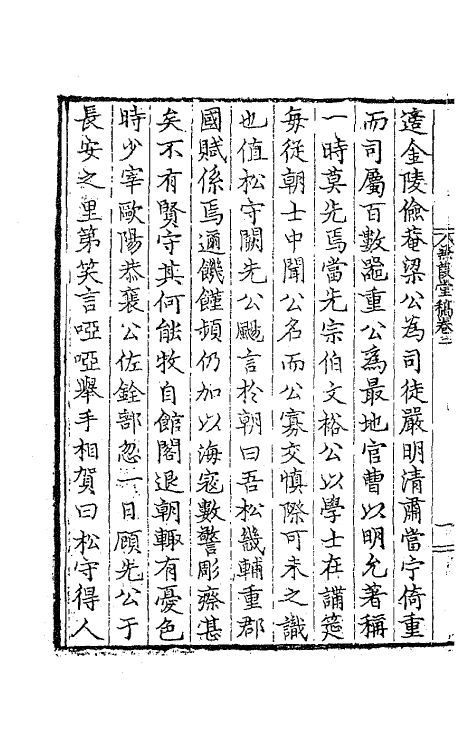 蓬金陵儉菴梁公為司徒嚴明清肅當宁倚重
而司屬百數器重公為最地官曹以明允著稱
一時莫先焉當先宗伯文裕公以學士在講筵
每從朝士中聞公名而公寡交慎際可未之識
也值松守闕先公颺言於朝曰吾松畿輔重郡
國賦係焉邇饑饉頻仍加以海寇數警彫瘵甚
矣不有賢守其何能牧自館閣退朝輙有憂色
時少宰歐陽恭襄公佐銓部忽一日顧先公于
長安之里第笑言啞啞舉手相賀曰松守得人
堂稿卷二